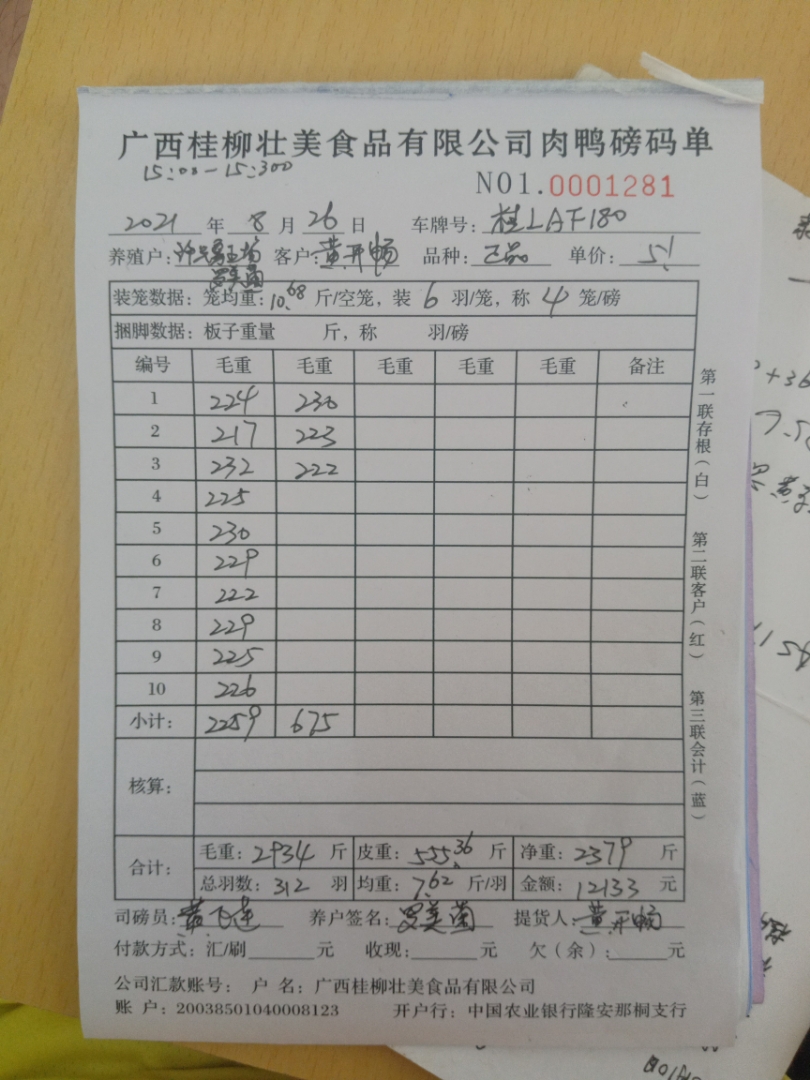 广西桂柳壮美食品有限公司肉鸭磅码单
15:00-15:300
NO1.0001281
2021 年 8 月 26 日 车牌号: 桂LAF180
养殖户: 客户: 黄开畅 品种: 正品 单价: 5.1
罗美菌
装笼数据: 笼均重: 10.68 斤/空笼, 装 6 羽/笼, 称 4 笼/磅
捆脚数据: 板子重量 斤, 称 羽/磅
编号 毛重 毛重 毛重 毛重 毛重 备注
1 224 230
2 217 223
3 232 222
4 225
5 230
6 229
7 222
8 229
9 225
10 226
小计: 2259 675
核算:
合计: 毛重: 2934 斤 皮重: 555.36 斤 净重: 2379 斤
总羽数: 312 羽 均重: 7.62 斤/羽 金额: 12133 元
司磅员: 黄飞连 养户签名: 罗美菌 提货人: 黄开畅
付款方式: 汇/刷 元 收现: 元 欠(余): 元
公司汇款账号: 户 名: 广西桂柳壮美食品有限公司
账 户: 20038501040008123 开户行: 中国农业银行隆安那桐支行
第一联存根(白)
第二联客户(红)
第三联会计(蓝)